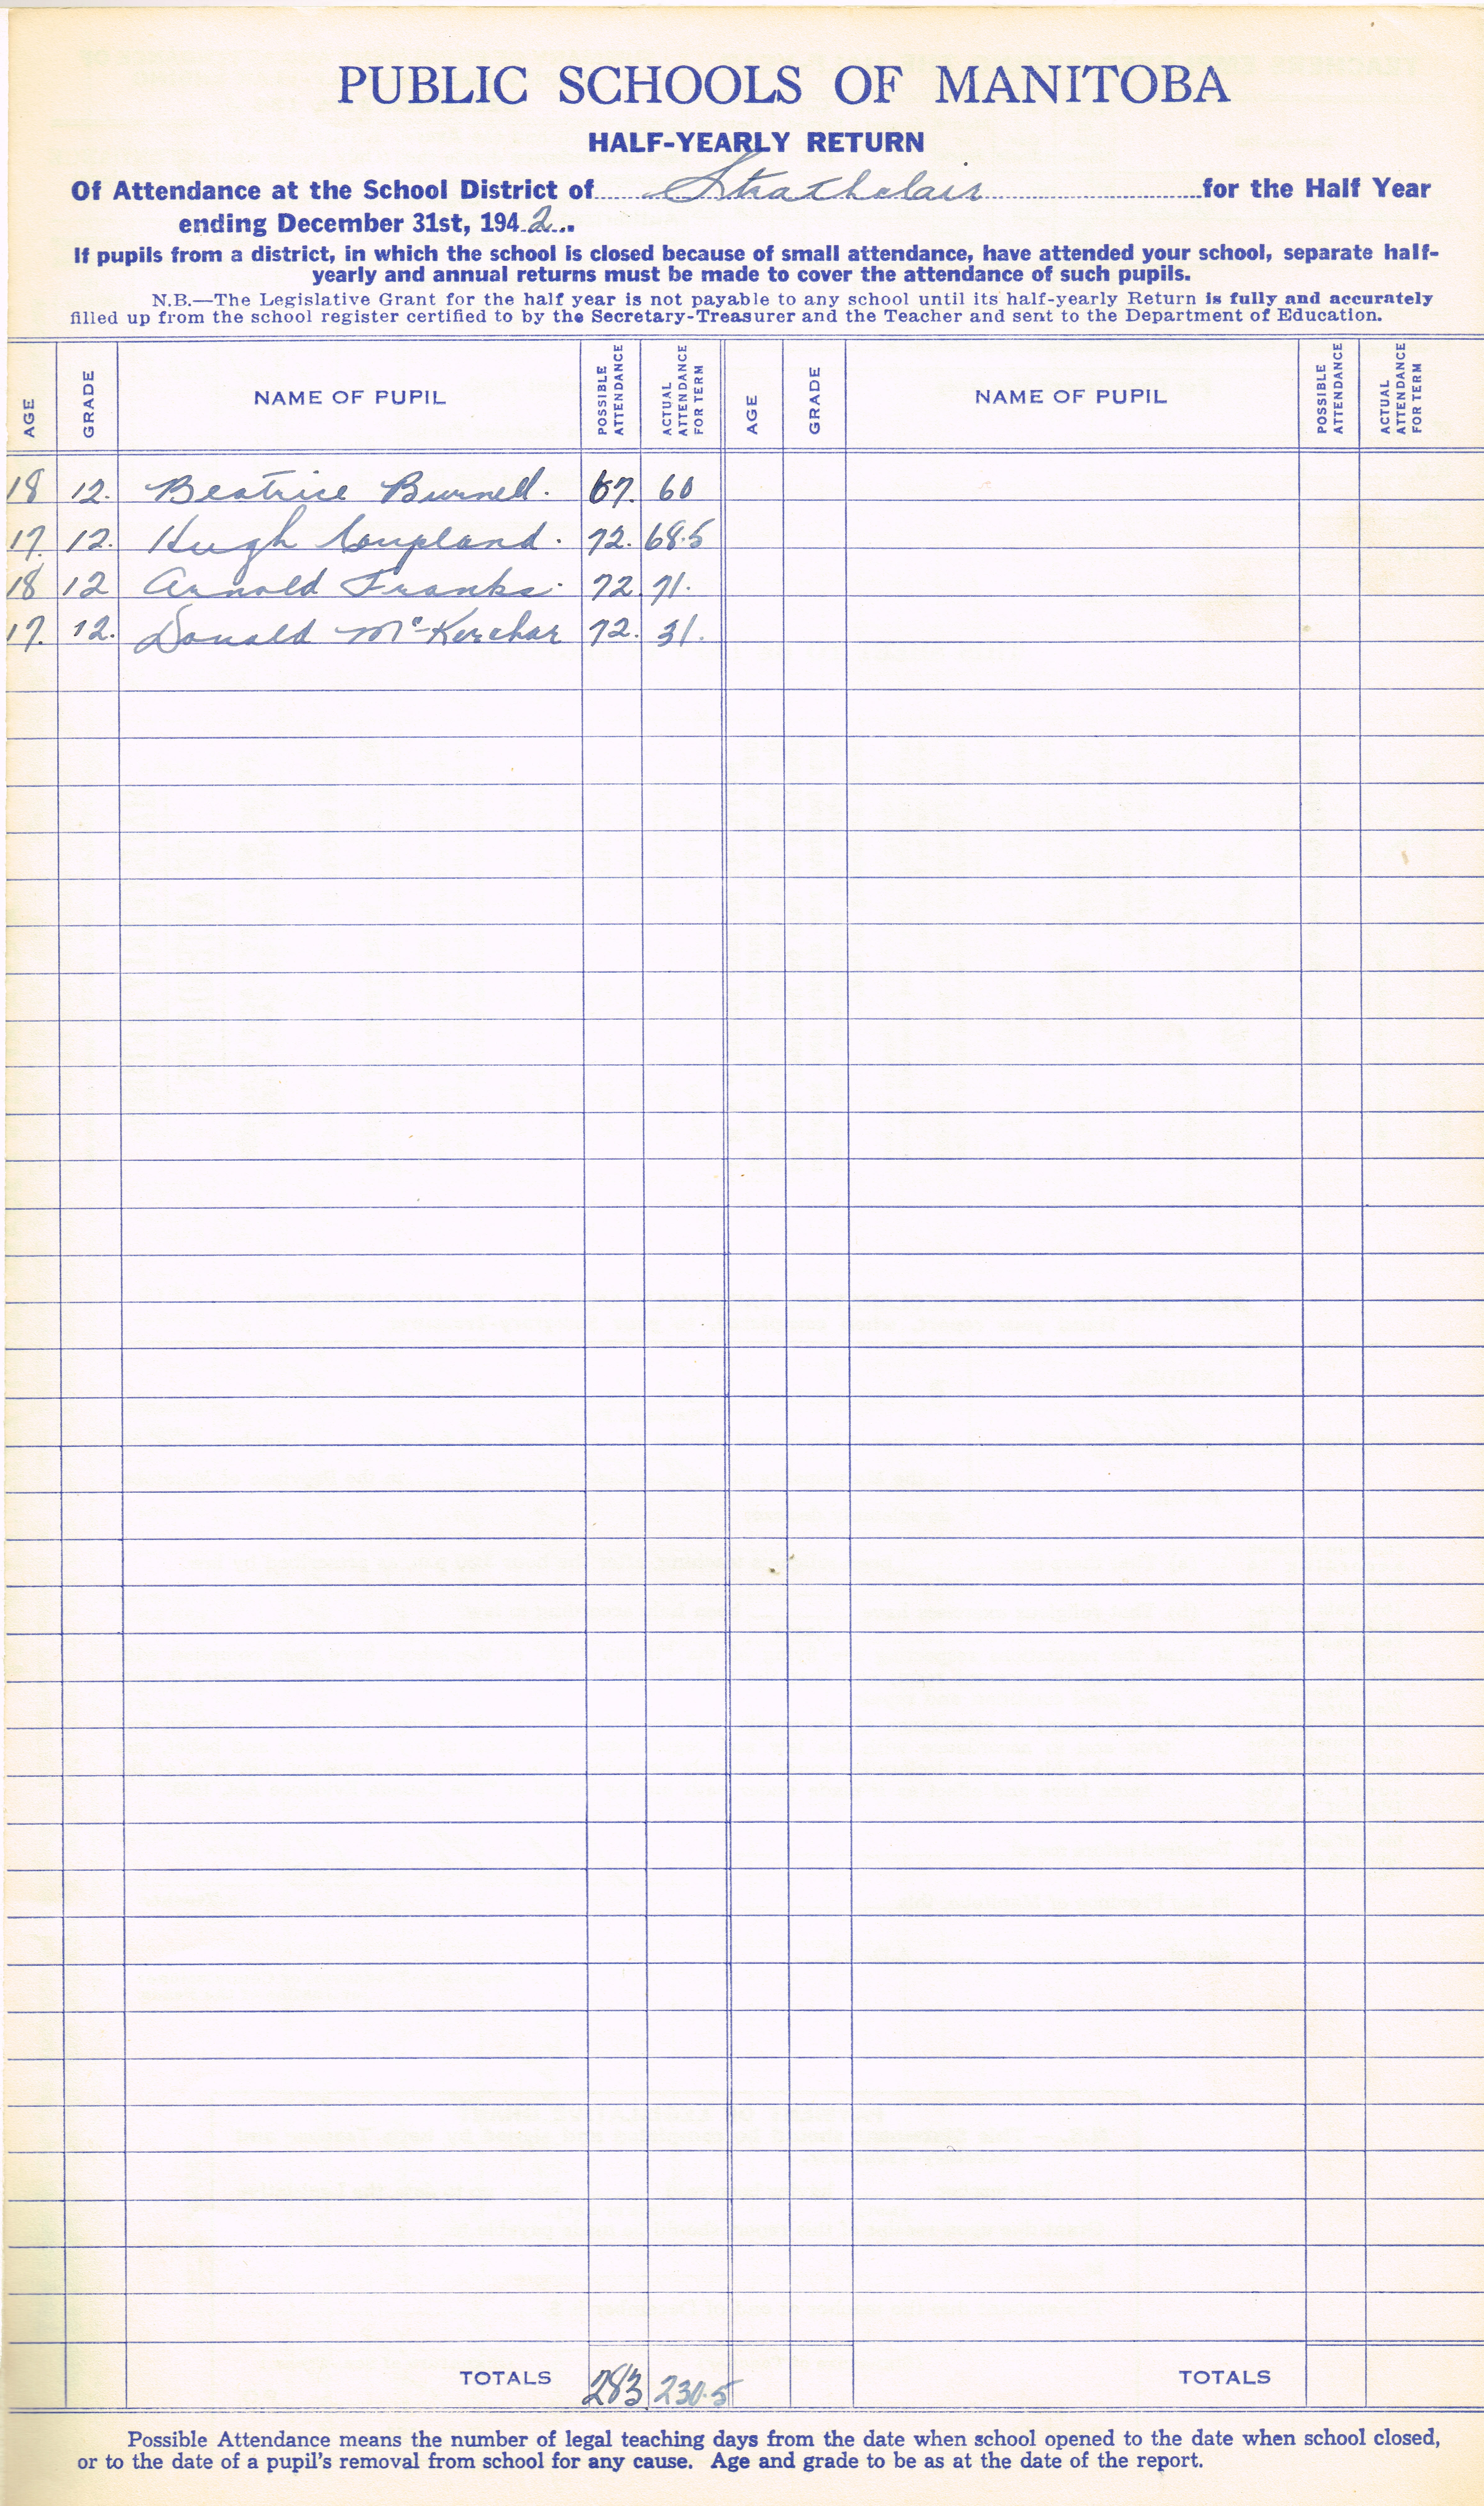 PUBLIC SCHOOLS OF MANITOBA
HALF-YEARLY RETURN
Of Attendance at the School District of Strathclair for the Half Year
ending December 31st, 1942..
If pupils from a district, in which the school is closed because of small attendance, have attended your school, separate half-
yearly and annual returns must be made to cover the attendance of such pupils.
N.B.—The Legislative Grant for the half year is not payable to any school until its half-yearly Return is fully and accurately
filled up from the school register certified to by the Secretary-Treasurer and the Teacher and sent to the Department of Education.
AGE GRADE NAME OF PUPIL POSSIBLE ATTENDANCE ACTUAL ATTENDANCE FOR TERM AGE GRADE NAME OF PUPIL POSSIBLE ATTENDANCE ACTUAL ATTENDANCE FOR TERM
18 12. Beatrice Burnell. 67. 60
17. 12. Hugh Coupland. 72. 68.5
18 12 Arnold Franks. 72. 71.
17. 12. Donald McKerchar 72. 31.
TOTALS 283 230.5 TOTALS
Possible Attendance means the number of legal teaching days from the date when school opened to the date when school closed,
or to the date of a pupil's removal from school for any cause. Age and grade to be as at the date of the report.